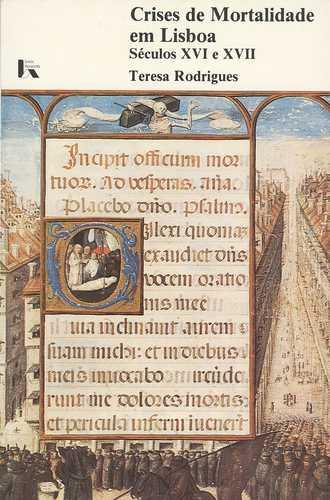 Crises de Mortalidade
em Lisboa
Séculos XVI e XVII
Teresa Rodrigues
Livros
Horizonte
Incipit officium mor
tuor. Ad vesperas. aña
Placebo dño. Psalm9.
Dilexi quoniam
exaudiet dñs
vocem oratio
nis mee
Quia inclinavit aurem
suam michi: et in diebus
meis invocabo. Circūde
runt me dolores mortis
et pericula inferni invenert